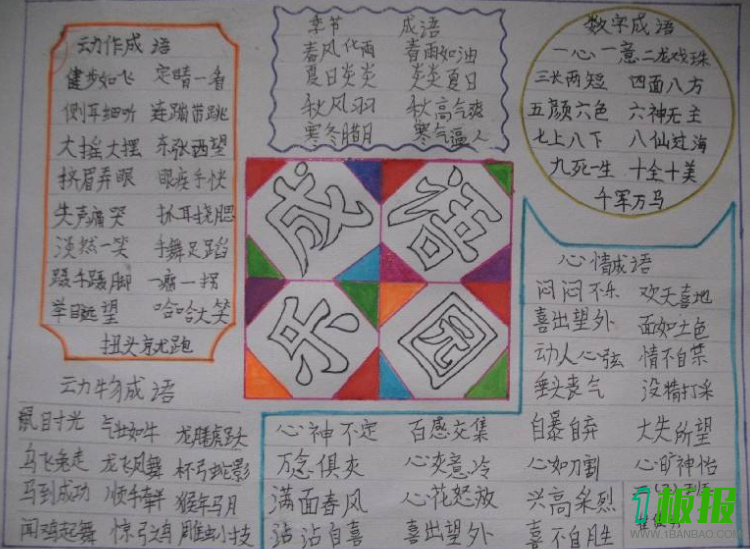 动作成语
健步如飞 定睛一看
侧耳细听 连蹦带跳
大摇大摆 东张西望
挤眉弄眼 眼疾手快
失声痛哭 抓耳挠腮
淡然一笑 手舞足蹈
蹑手蹑脚 一瘸一拐
举目远望 哈哈大笑
扭头就跑
季节 成语
春风化雨 春雨如油
夏日炎炎 炎炎夏日
秋风羽 秋高气爽
寒冬腊月 寒气逼人
数字成语
一心一意 二龙戏珠
三长两短 四面八方
五颜六色 六神无主
七上八下 八仙过海
九死一生 十全十美
千军万马
成语
乐园
心情成语
闷闷不乐 欢天喜地
喜出望外 面如土色
动人心弦 情不自禁
垂头丧气 没精打采
心神不定 百感交集 自暴自弃 大失所望
万念俱灰 心灰意冷 心如刀割 心旷神怡
满面春风 心花怒放 兴高采烈
沾沾自喜 喜出望外 喜不自胜
动物成语
鼠目寸光 气壮如牛 龙腾虎跃
乌飞兔走 龙飞凤舞 杯弓蛇影
马到成功 顺手牵羊 猴年马月
闻鸡起舞 惊弓之鸟 雕虫小技
1板报
WWW.1BANBAO.COM